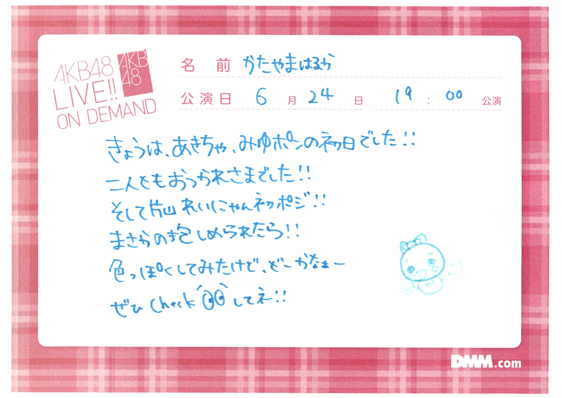 AKB48
LIVE!!
ON DEMAND
AKB
48
名前 かたやまはるか
公演日 6月24日 19:00公演
きょうは、あきちゃ、みゆポンの初日でした!!
二人ともおつかれさまでした!!
そして片山れいにゃん初ポジ!!
まさかの抱きしめられたら!!
色っぽくしてみたけど、どーかなぁー
ぜひCheckしてネ!!
DMM.com